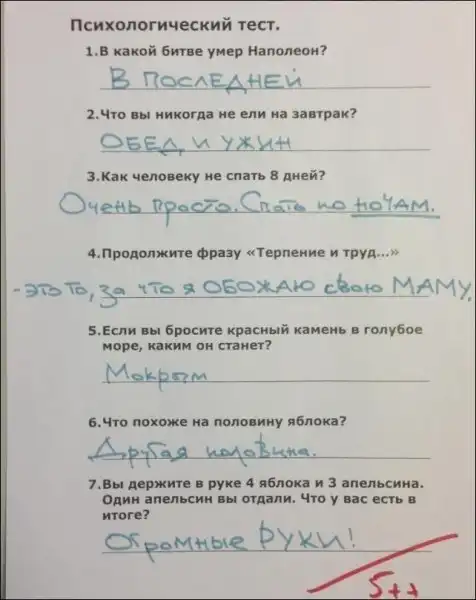 Психологический тест.
1.В какой битве умер Наполеон?
В ПОСЛЕДНЕЙ
2.Что вы никогда не ели на завтрак?
ОБЕД И УЖИН
3.Как человеку не спать 8 дней?
Очень просто. Спать по НОЧАМ.
4.Продолжите фразу «Терпение и труд...»
- это то, за что я ОБОЖАЮ свою МАМУ.
5.Если вы бросите красный камень в голубое
море, каким он станет?
Мокрым
6.Что похоже на половину яблока?
Другая половина.
7.Вы держите в руке 4 яблока и 3 апельсина.
Один апельсин вы отдали. Что у вас есть в
итоге?
Огромные РУКИ!
5++